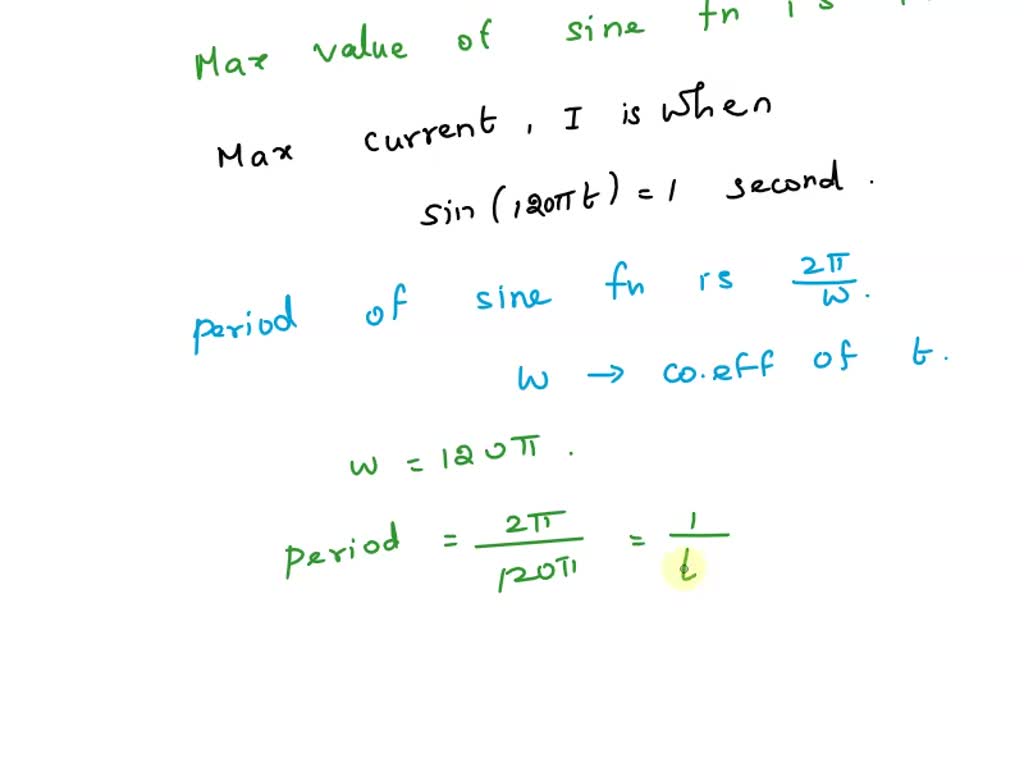 Max value of sine fn is
Max current, I is when
sin (120πt) = 1 second.
period of sine fn is 2π/w.
w → co.eff of t.
w = 120π.
period = 2π/120π = 1/